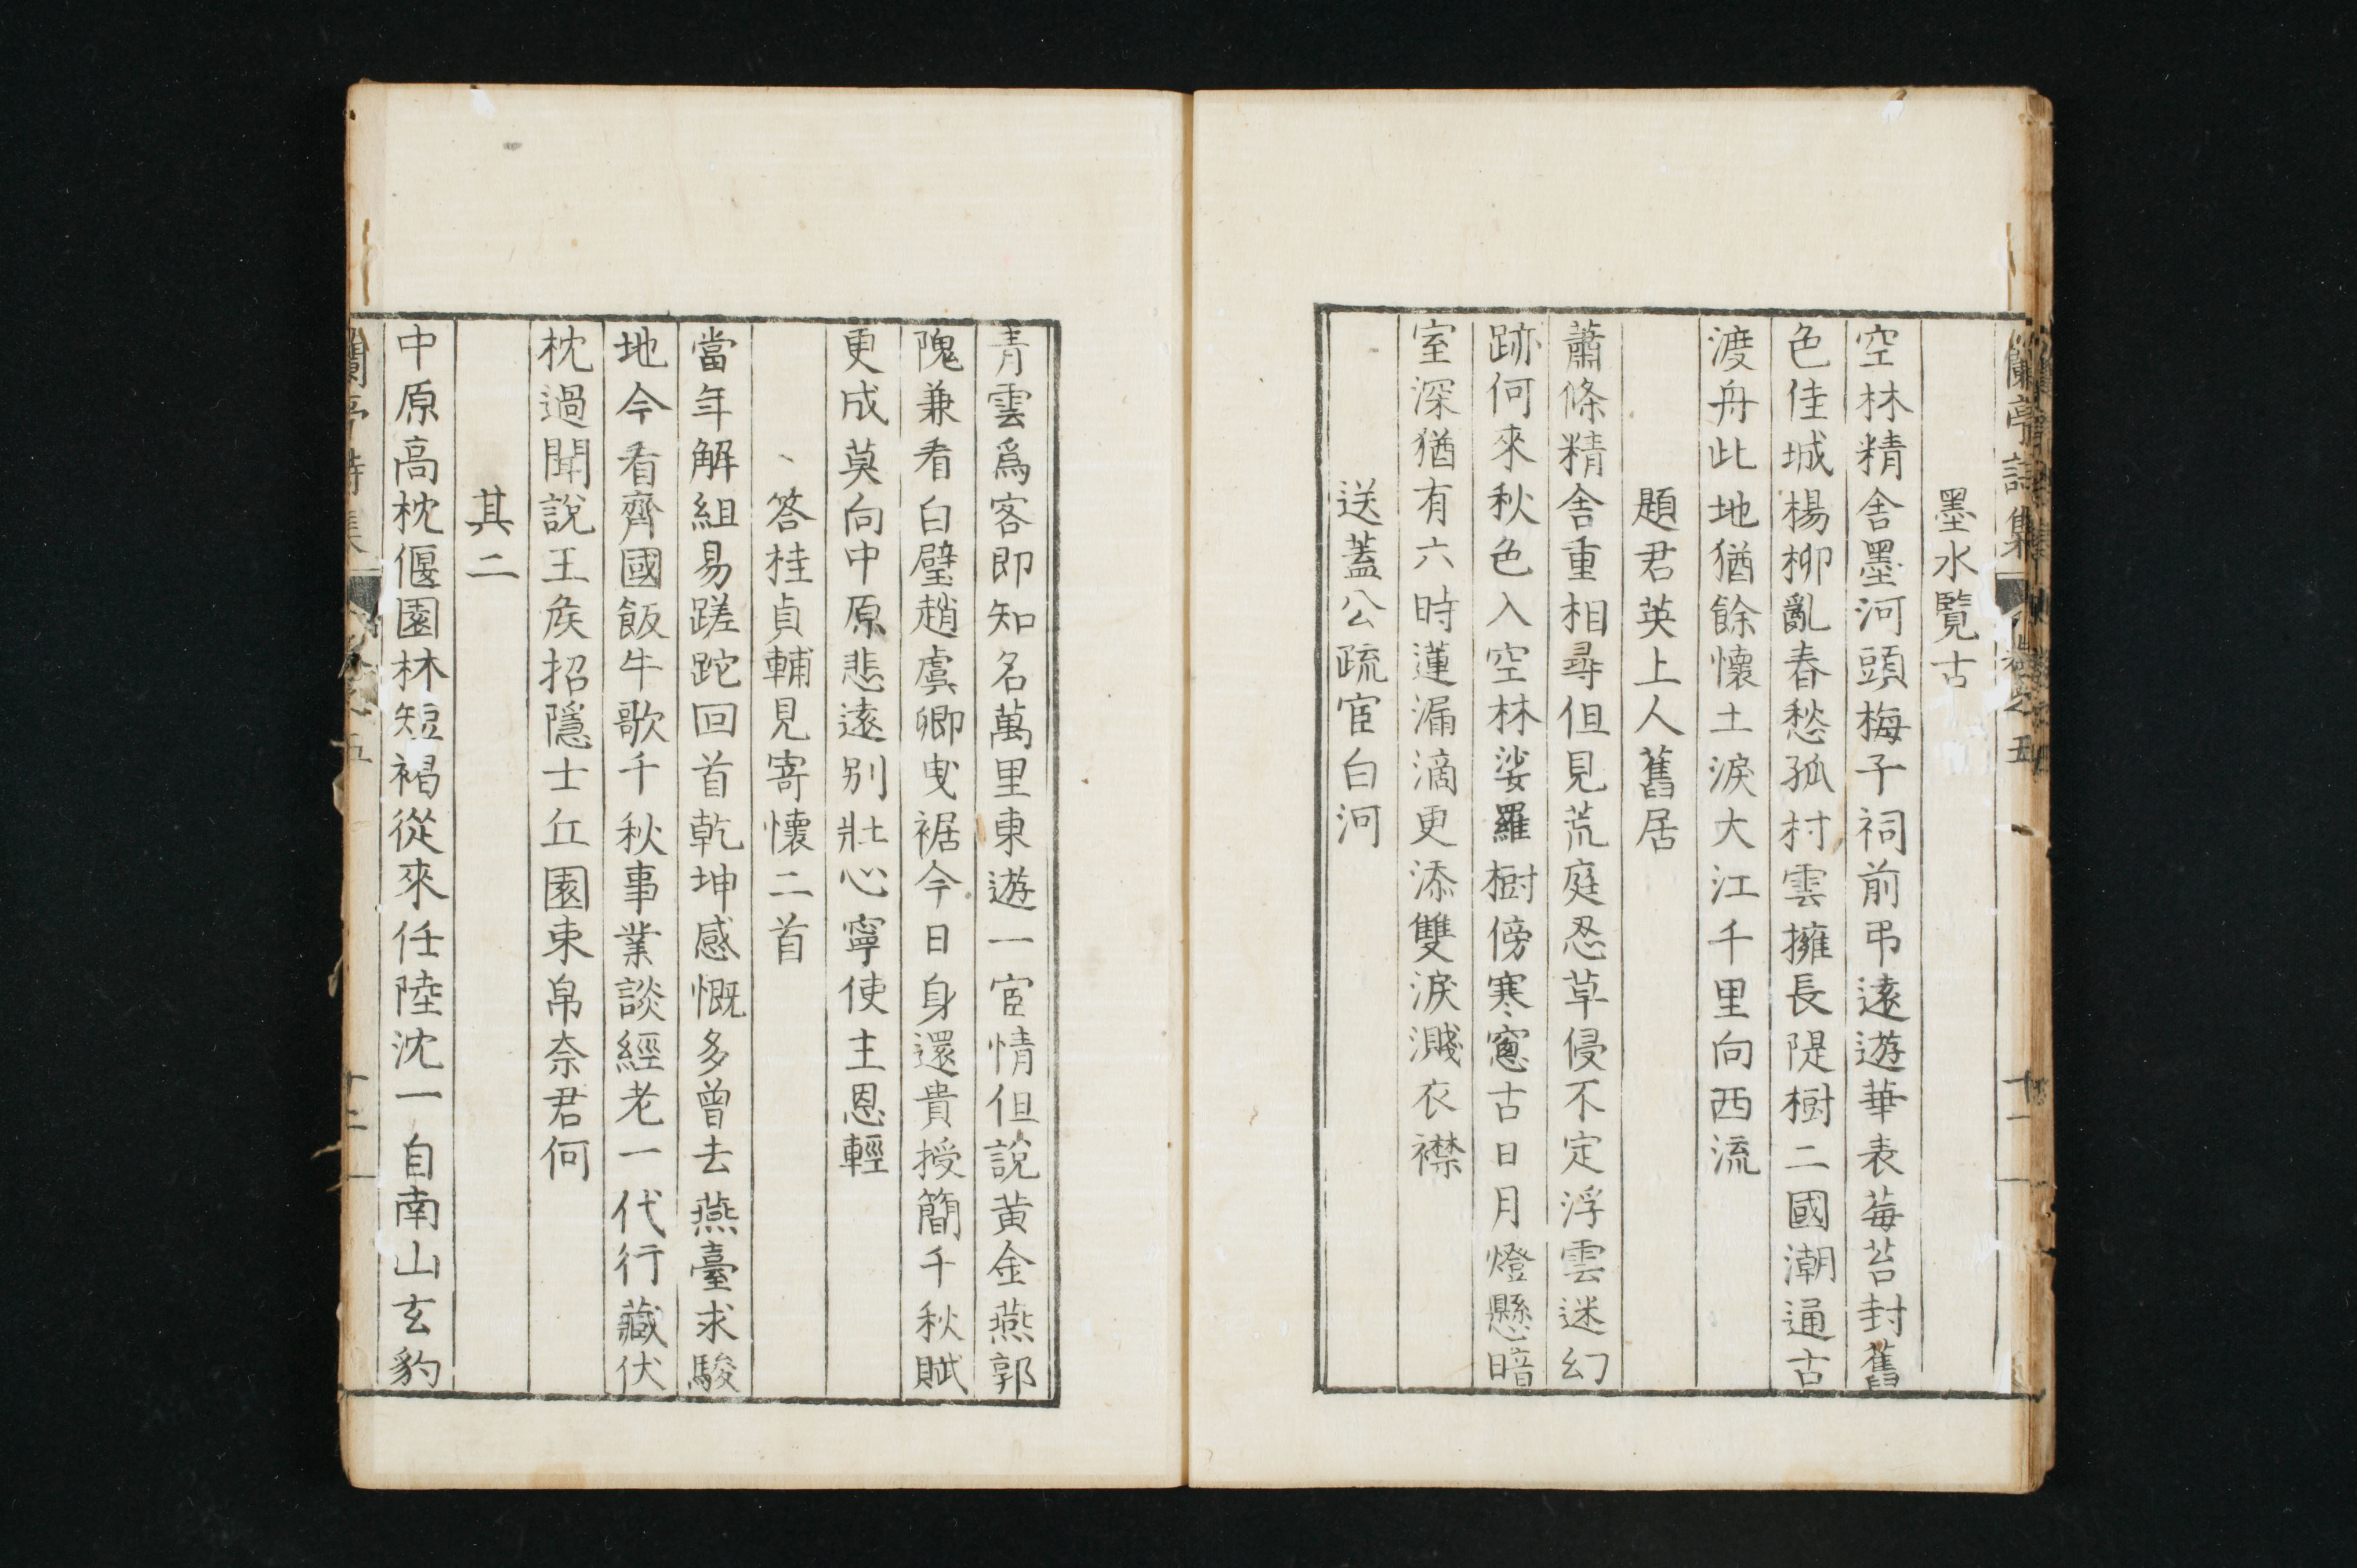 蘭亭詩集 卷之五 十一
墨水覽古
空林精舍墨河頭梅子祠前弔遠遊華表莓苔封舊
色佳城楊柳亂春愁孤村雲擁長隄樹二國潮通古
渡舟此地猶餘懷土淚大江千里向西流
題君英上人舊居
蕭條精舍重相尋但見荒庭忍草侵不定浮雲迷幻
跡何來秋色入空林娑羅樹傍寒窻古日月燈懸暗
室深猶有六時蓮漏滴更添雙淚濺衣襟
送蓋公疏宦白河
青雲爲客即知名萬里東遊一宦情但說黃金燕郭
隗兼看白璧趙虞卿曳裾今日身還貴授簡千秋賦
更成莫向中原悲遠別壯心寧使主恩輕
答桂貞輔見寄懷二首
當年解組易蹉跎回首乾坤感慨多曾去燕臺求駿
地今看齊國飯牛歌千秋事業談經老一代行藏伏
枕過聞說王侯招隱士丘園束帛奈君何
其二
中原高枕偃園林短褐從來任陸沈一自南山玄豹
蘭亭詩集 卷之五 十二